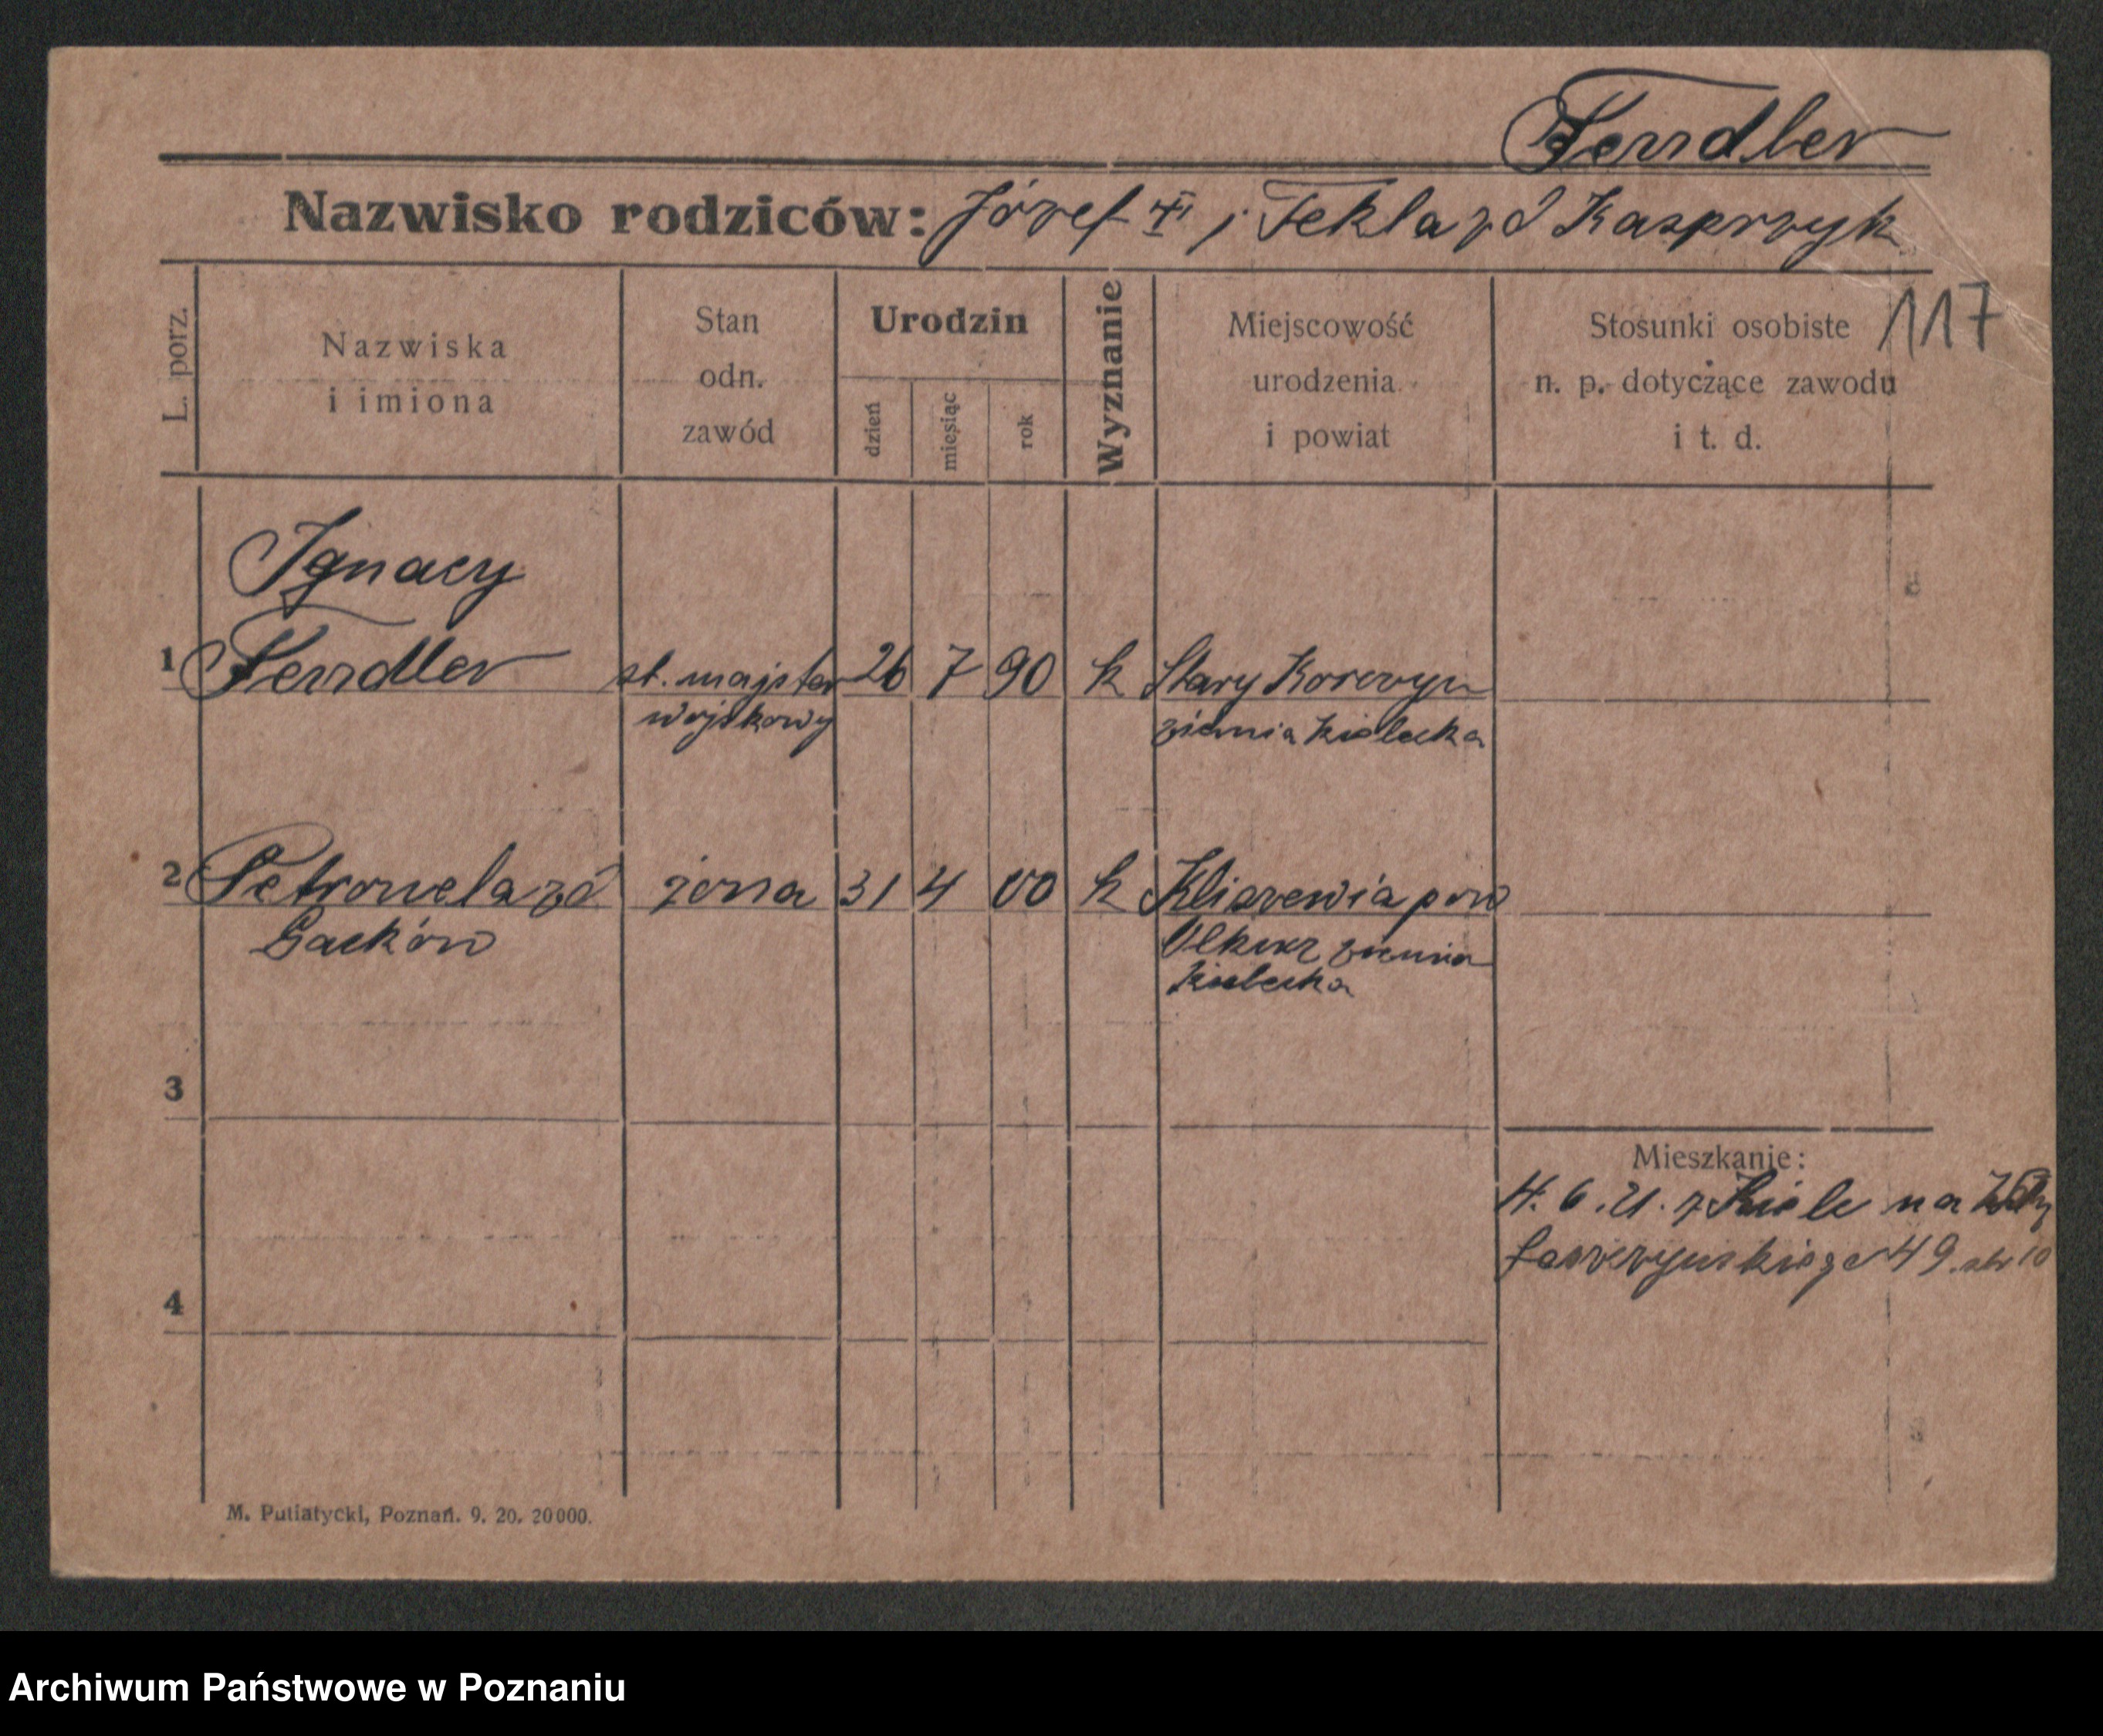 Fendler
Nazwisko rodziców: Józef i Tekla zd Kasprzyk
117
L. porz.
Nazwiska
i imiona
Stan
odn.
zawód
Urodzin
dzień
miesiąc
rok
Wyznanie
Miejscowość
urodzenia
i powiat
Stosunki osobiste
n. p. dotyczące zawodu
i t. d.
Ignacy
1 Fendler st. majster 26 7 90 k Stary Korczyn
wojskowy ziemia kielecka
2 Petronela zd żona 31 4 00 k pow
Gacków ziemia
kielecka
3
Mieszkanie:
4. 6. 21. z Kielc na
49.
4
M. Putiatycki, Poznań. 9. 20. 20000.
Archiwum Państwowe w Poznaniu